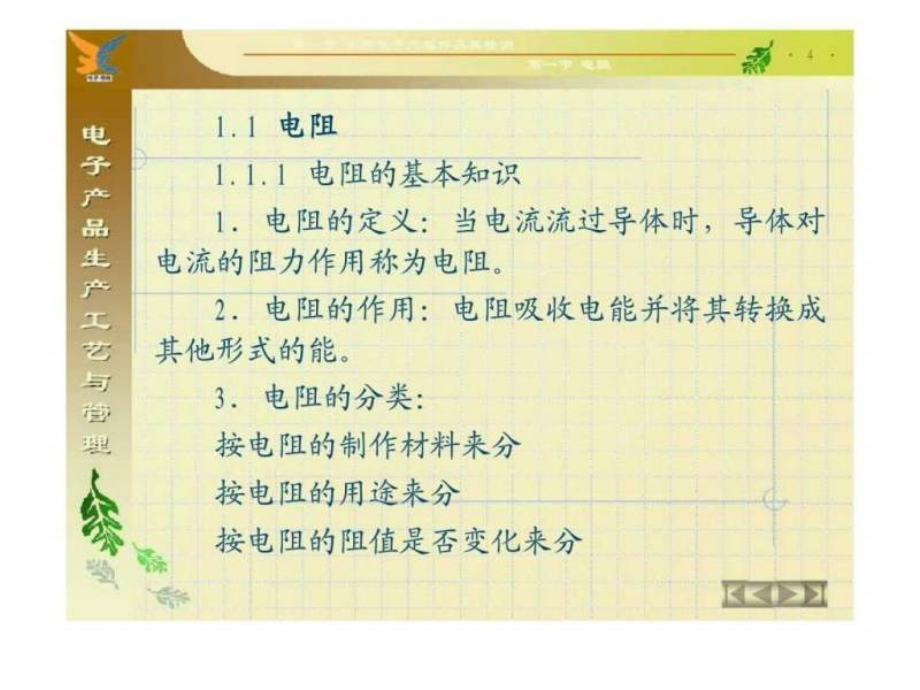 第一节 电阻
· 4 ·
电子产品生产工艺与管理
1.1 电阻
1.1.1 电阻的基本知识
1. 电阻的定义：当电流流过导体时，导体对
电流的阻力作用称为电阻。
2. 电阻的作用：电阻吸收电能并将其转换成
其他形式的能。
3. 电阻的分类：
按电阻的制作材料来分
按电阻的用途来分
按电阻的阻值是否变化来分